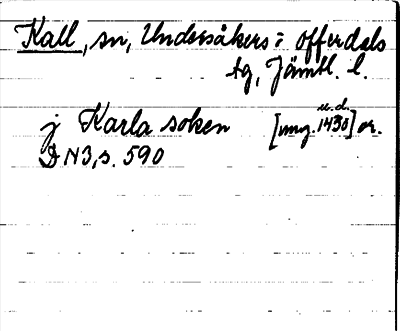 Kall, sn, Undersåkers o offerdals
tg, Jämtl. l.
j Karla soken [omg. 1430] or.
u.d.
DN3, s. 590